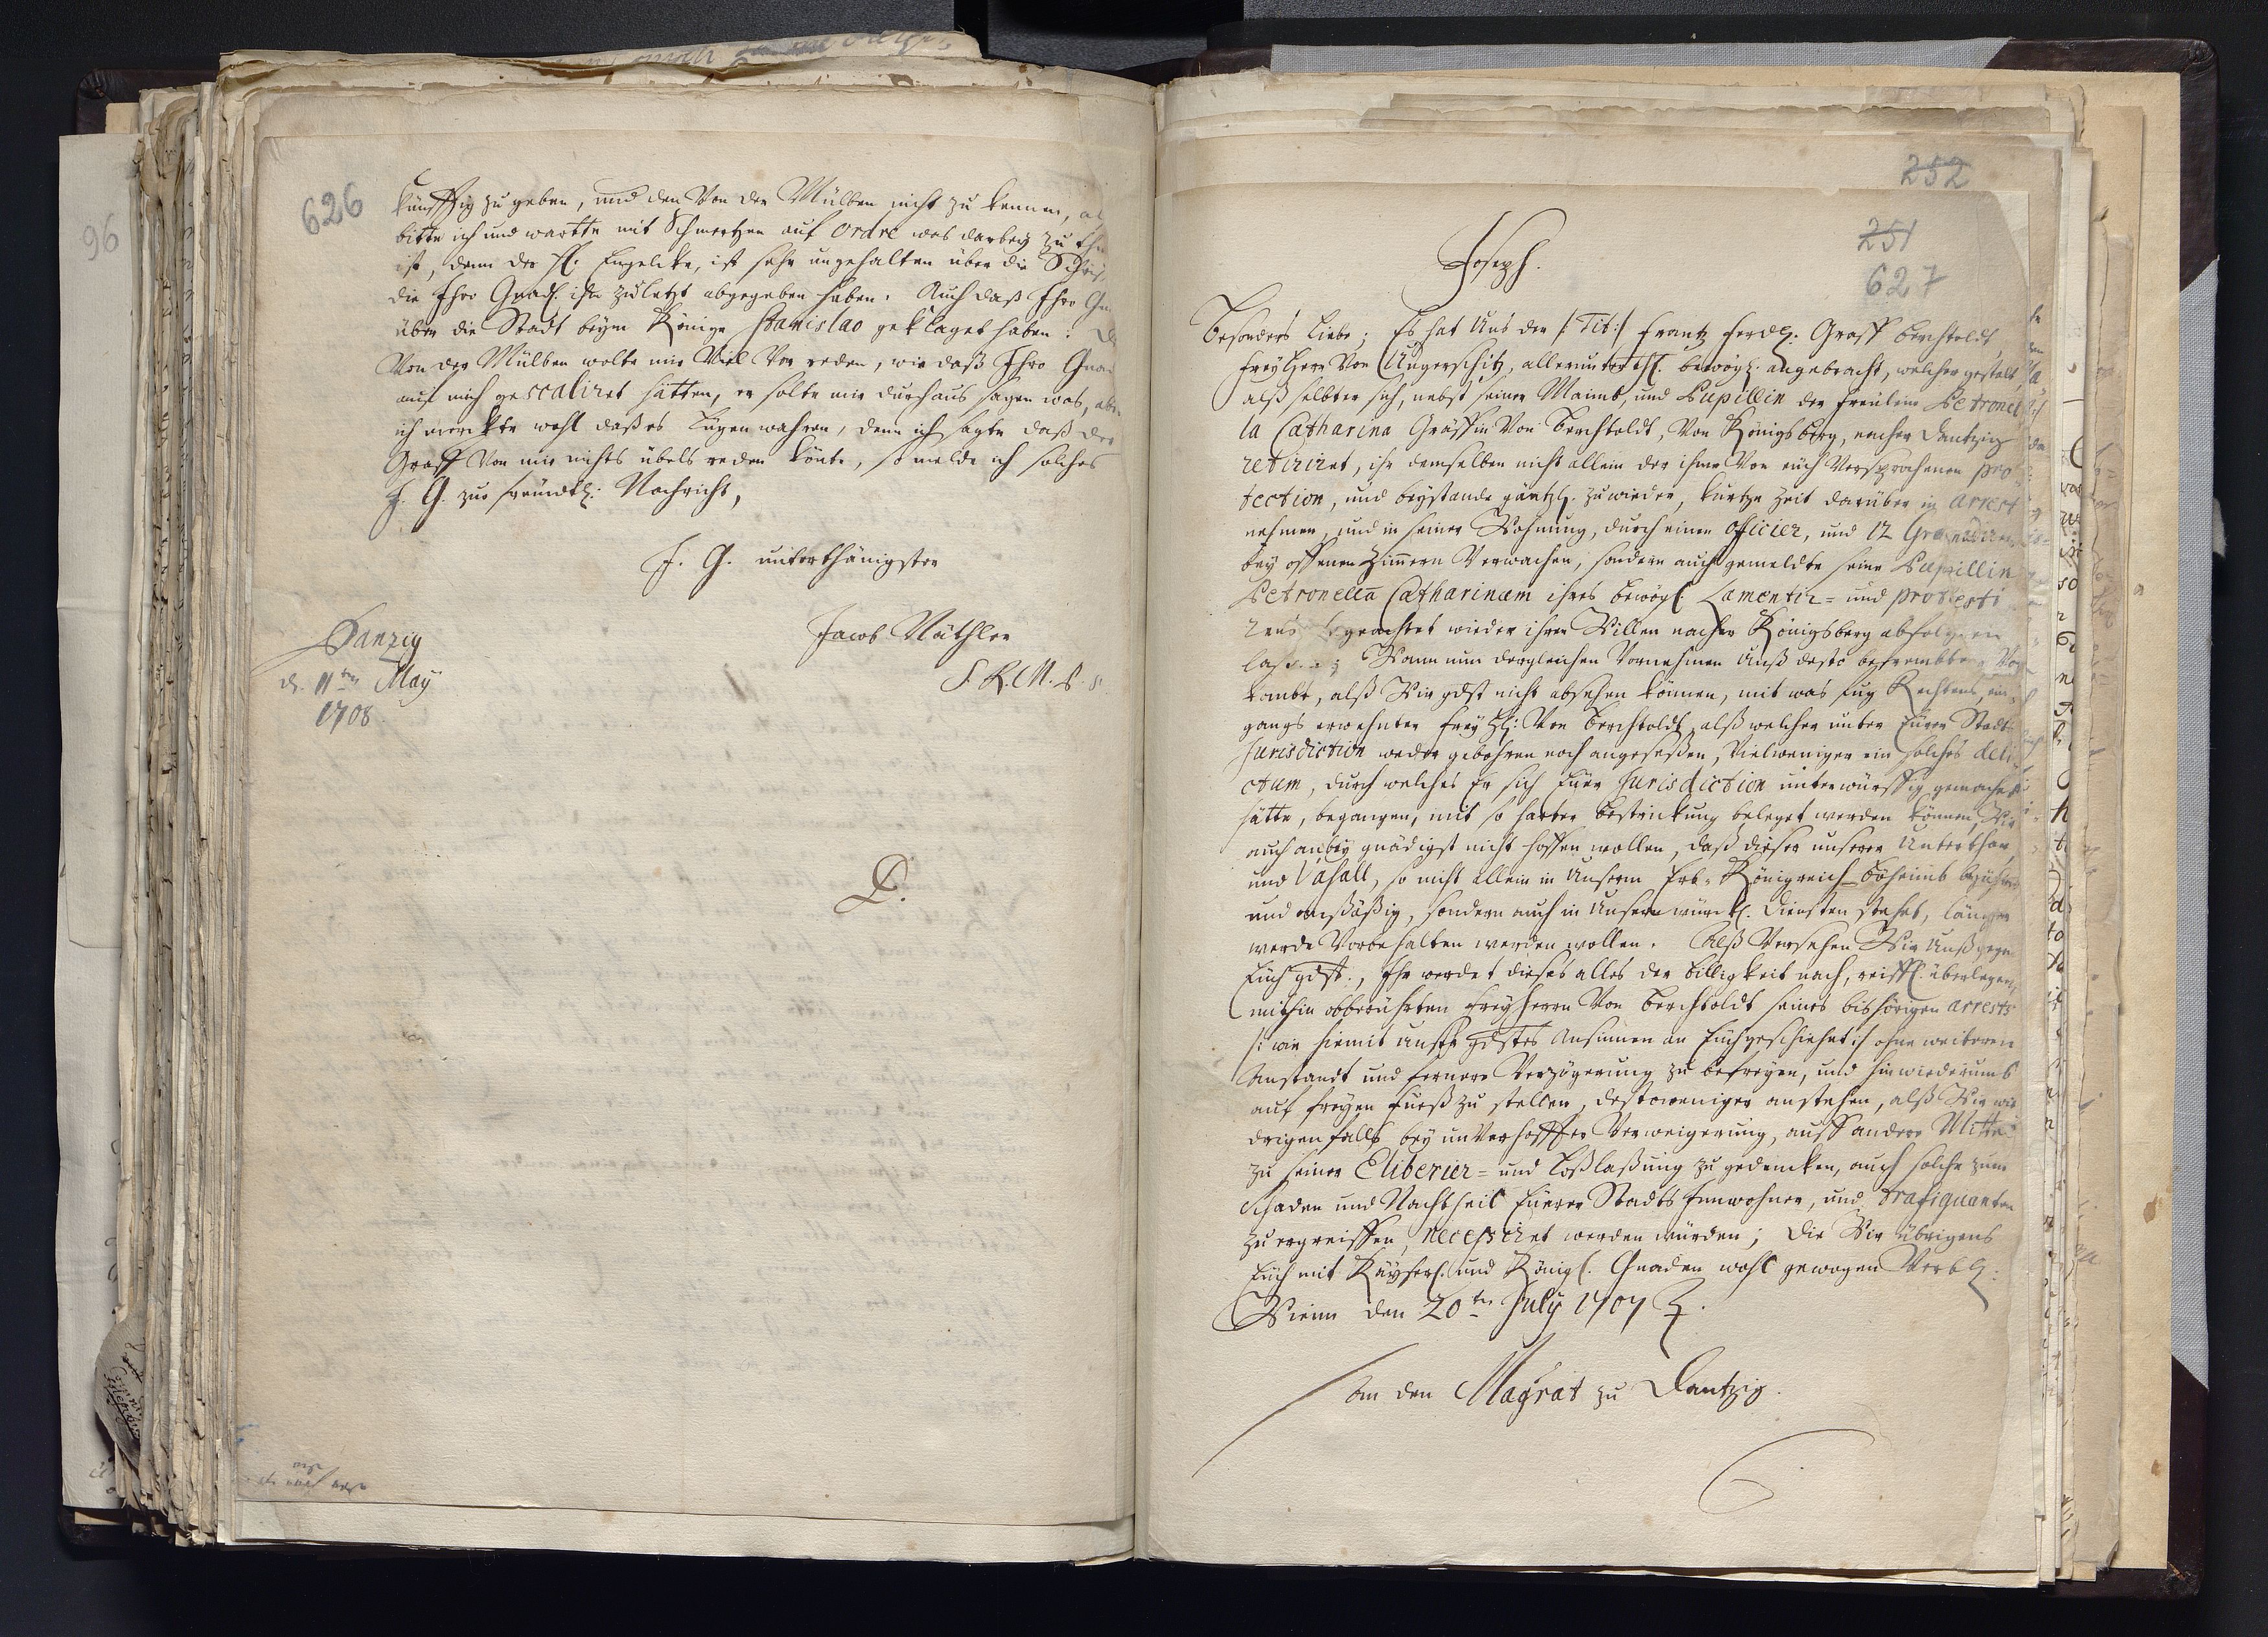 626
künfftig zu geben, und den Von der Mülben nicht zu kennen,
bitte ich und wartte mit Schmertzen auf ordre was darbey zu
ist, denn der H. Engelcke, ist sehr ungehalten über die
die Ihro Gnad. ihm zuletzt abgegeben haben. Auch daß Ihro
über die Stadt beym Könige Stanislao geklaget haben:
Von der Mülben wolte mir Viel Vor reden, wie daß Ihro
auf mich gescaliret hätten, er solte mir durchaus sagen was,
ich merckte wohl daß es Lügen wahren, denn ich sagte daß der
Graff Von mir nichts übels reden könte, so melde ich solches
E. G. zur freundtl: Nachricht,
E. G. unterthänigster
Jacob Näthler
S. R. M. P.
Danzig
d. 11ten May
1708
96
252
251
627
Joseph.
Besonders Liebe; Es hat Uns der /: Tit :/ Frantz Ferd: Graff Berchtoldt
Freyherr Von Ungerschitz, allerunterth. bewögl. angebracht, welcher gestalt,
alß selbter sich, nebst seiner Maimb, und Pupillin der Freulein Petronel
la Catharina Gräffin Von Berchtoldt, Von Königsberg, nacher Dantzig
retiriret, ihr demselben nicht allein der ihme Von euch Versprochenen pro
tection, und beystande gäntzl. zu wieder, kurtze Zeit darüber in arrest
nehmen, und in seiner Wohnung, durch einen officier, und 12
bey offenen Zimmern Verwachen, sondern auch gemeldte seine Pupillin
Petronella Catharinam ihres bewögl. Lamentir- und protesti
wieder ihren Willen nacher Königsberg abfolgen
laßen; Wann nun dergleichen Vornehmen Unß desto befrembter
kombt, alß Wir gdst nicht absehen können, mit was fug Rechtens, ein
gangs erwehnter Frey H: Von Berchtoldt, alß welcher unter Eurer Stadt
Jurisdiction weder gebohren noch angeseßen, Vielweniger ein solches deli
ctum, durch welches Er sich Euer Jurisdiction unterwürffig gemachet
hätte, begangen, mit so harter Bestrickung beleget werden können, Wir
auch anbey gnädigst nicht hoffen wollen, daß dieser unserer Unterthan
und Vasall, so nicht allein in Unserm Erb-Königreich Böheimb
und anßäßig, sondern auch in Unsern würckl. Diensten stehet, länger
werde Vorbehalten werden wollen. Alß Versehen Wir Unß gegen
Euch gdst., Ihr werdet dieses alles der Billigkeit nach, reiffl. überlegen,
mithin obberührten Freyherrn Von Berchtoldt seines bishörigen arrests
/: wie hiemit Unser gdstes Ansinnen an Euch geschiehet :/ ohne weiteren
Anstandt und fernere Verzögerung zu befreyen, und hinwiederumb
auf freyen Fueß zu stellen, destoweniger anstehen, alß Wir wie
drigenfalls bey unVerhoffter Verweigerung, auff andere Mittel
zu seiner Eliberier- und Loßlaßung zu gedencken, auch solche zum
Schaden und Nachtheil Euerer Stadts Innwohner, und trafiquanten
zu ergreiffen, necessiret werden würden; Die Wir übrigens
Euch mit Käyserl. und Königl. Gnaden wohl gewogen Verbl:
Wienn den 20ten July 1707
An den Magrat zu Dantzig.